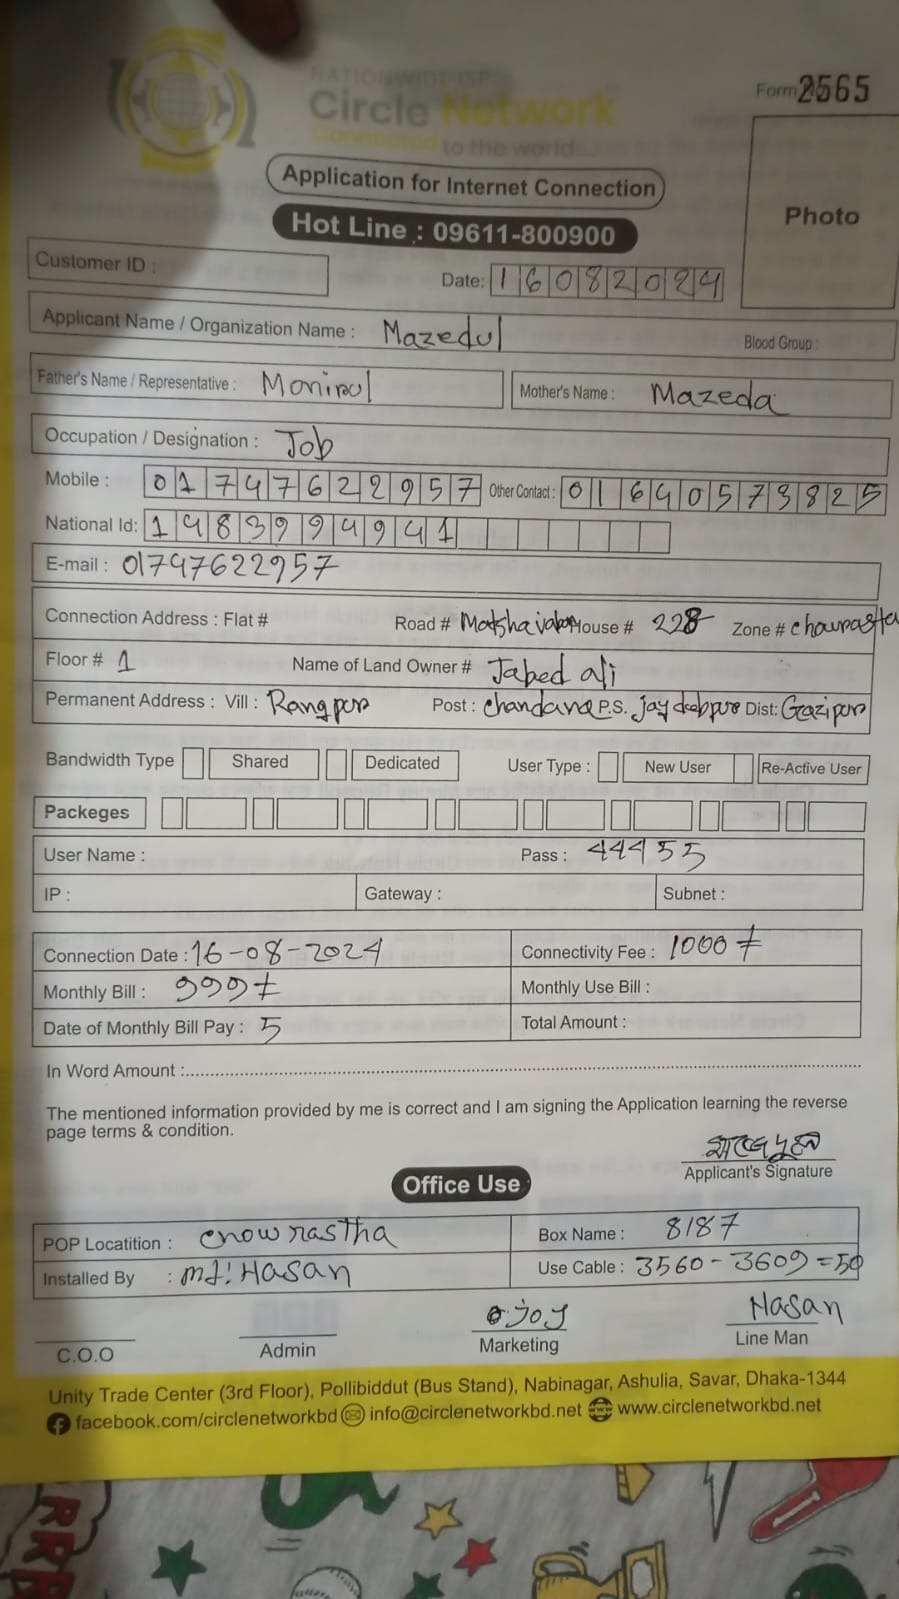 NATIONWIDE ISP
Circle Network
Connected to the world...
Form 2565
Application for Internet Connection
Hot Line : 09611-800900
Photo
Customer ID :
Date: 16082024
Applicant Name / Organization Name : Mazedul
Blood Group :
Father's Name / Representative : Monirul
Mother's Name : Mazeda
Occupation / Designation : Job
Mobile : 01747622957 Other Contact : 01640573825
National Id: 1483994941
E-mail : 01747622957
Connection Address : Flat # Road # House # 228 Zone # chourasta
Floor # 1 Name of Land Owner # Jabed ali
Permanent Address : Vill : Rangpur Post : Chandana P.S. Jaydebpure Dist: Gazipur
Bandwidth Type Shared Dedicated User Type : New User Re-Active User
Packeges
User Name : Pass : 44455
IP : Gateway : Subnet :
Connection Date : 16-08-2024 Connectivity Fee : 1000/=
Monthly Bill : 999/= Monthly Use Bill :
Date of Monthly Bill Pay : 5 Total Amount :
In Word Amount :
The mentioned information provided by me is correct and I am signing the Application learning the reverse
page terms & condition.
মাজেদুল
Applicant's Signature
Office Use
POP Locatition : Chowrastha Box Name : 8187
Installed By : Md: Hasan Use Cable : 3560-3609=50
C.O.O Admin Marketing Line Man
Ojoy Hasan
Unity Trade Center (3rd Floor), Pollibiddut (Bus Stand), Nabinagar, Ashulia, Savar, Dhaka-1344
facebook.com/circlenetworkbd info@circlenetworkbd.net www.circlenetworkbd.net